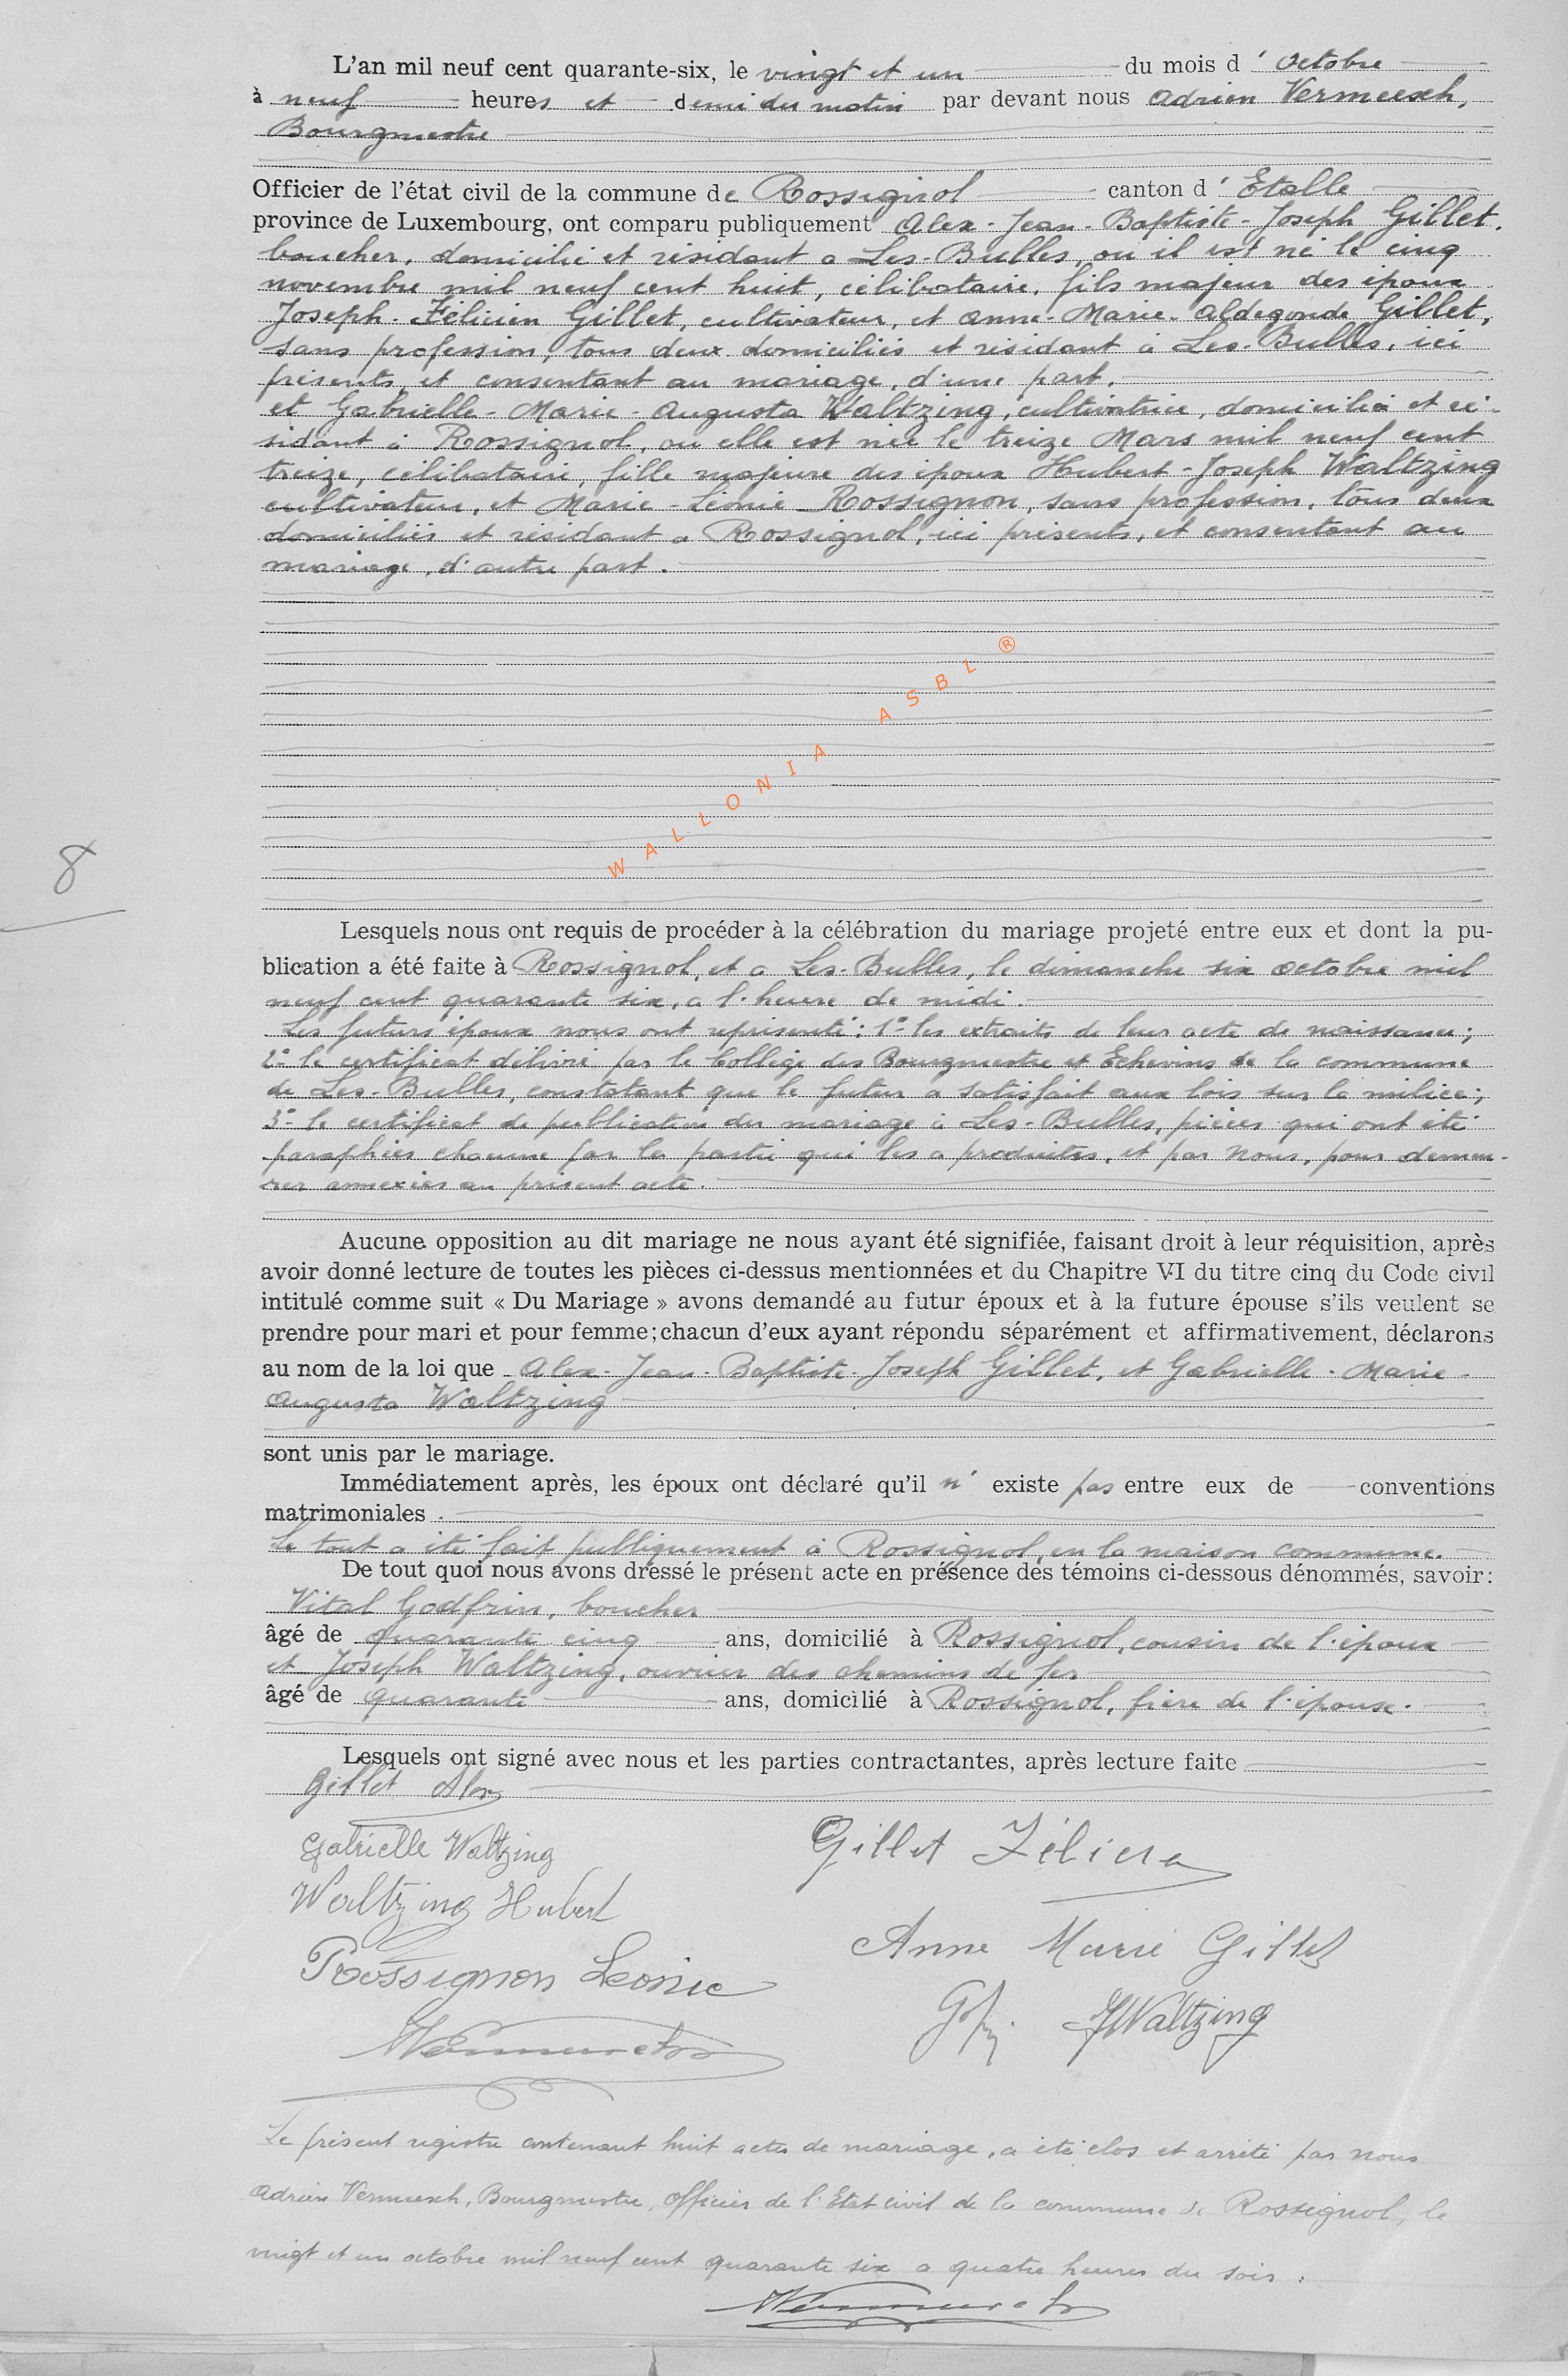 L'an mil neuf cent quarante-six, le vingt et un du mois d'octobre
à neuf heures et demi du matin par devant nous Adrien Vermeesch,
Bourgmestre
Officier de l'état civil de la commune de Rossignol canton d'Etalle
province de Luxembourg, ont comparu publiquement Alex-Jean-Baptiste-Joseph Gillet,
boucher, domicilié et résidant à Les-Bulles, où il est né le cinq
novembre mil neuf cent huit, célibataire, fils majeur des époux
Joseph-Félicien Gillet, cultivateur, et Anne-Marie-Aldegonde Gillet,
sans profession, tous deux domiciliés et résidant à Les-Bulles, ici
présents, et consentant au mariage, d'une part.
et Gabrielle-Marie-Augusta Waltzing, cultivatrice, domiciliée et ré-
sidant à Rossignol, où elle est née le treize Mars mil neuf cent
treize, célibataire, fille majeure des époux Hubert-Joseph Waltzing
cultivateur, et Marie-Léonie Rossignon, sans profession, tous deux
domiciliés et résidant à Rossignol, ici présents, et consentant au
mariage, d'autre part.
WALLONIA ASBL ®
8
Lesquels nous ont requis de procéder à la célébration du mariage projeté entre eux et dont la pu-
blication a été faite à Rossignol, et à Les-Bulles, le dimanche six octobre mil
neuf cent quarante six, à l'heure de midi.
Les futurs époux nous ont représenté : 1° les extraits de leur acte de naissance ;
2° le certificat délivré par le Collège des Bourgmestre et Echevins de la commune
de Les-Bulles, constatant que le futur a satisfait aux lois sur la milice ;
3° le certificat de publication du mariage à Les-Bulles, pièces qui ont été
paraphées chacune par la partie qui les a produites, et par Nous, pour demeu-
rer annexées au présent acte.
Aucune opposition au dit mariage ne nous ayant été signifiée, faisant droit à leur réquisition, après
avoir donné lecture de toutes les pièces ci-dessus mentionnées et du Chapitre VI du titre cinq du Code civil
intitulé comme suit « Du Mariage » avons demandé au futur époux et à la future épouse s'ils veulent se
prendre pour mari et pour femme; chacun d'eux ayant répondu séparément et affirmativement, déclarons
au nom de la loi que Alex-Jean-Baptiste-Joseph Gillet, et Gabrielle-Marie-
Augusta Waltzing
sont unis par le mariage.
Immédiatement après, les époux ont déclaré qu'il n'existe pas entre eux de conventions
matrimoniales.
Le tout a été fait publiquement à Rossignol, en la maison commune.
De tout quoi nous avons dressé le présent acte en présence des témoins ci-dessous dénommés, savoir :
Vital Godfrin, boucher
âgé de quarante cinq ans, domicilié à Rossignol, cousin de l'époux
et Joseph Waltzing, ouvrier des chemins de fer
âgé de quarante ans, domicilié à Rossignol, frère de l'épouse.
Lesquels ont signé avec nous et les parties contractantes, après lecture faite
Gillet Alex
Gabrielle Waltzing
Gillet Félicien
Waltzing Hubert
Anne Marie Gillet
Rossignon Léonie
JWaltzing
Le présent registre contenant huit actes de mariage, a été clos et arrêté par nous
Adrien Vermeesch, Bourgmestre, officier de l'Etat civil de la commune de Rossignol, le
vingt et un octobre mil neuf cent quarante six à quatre heures du soir.